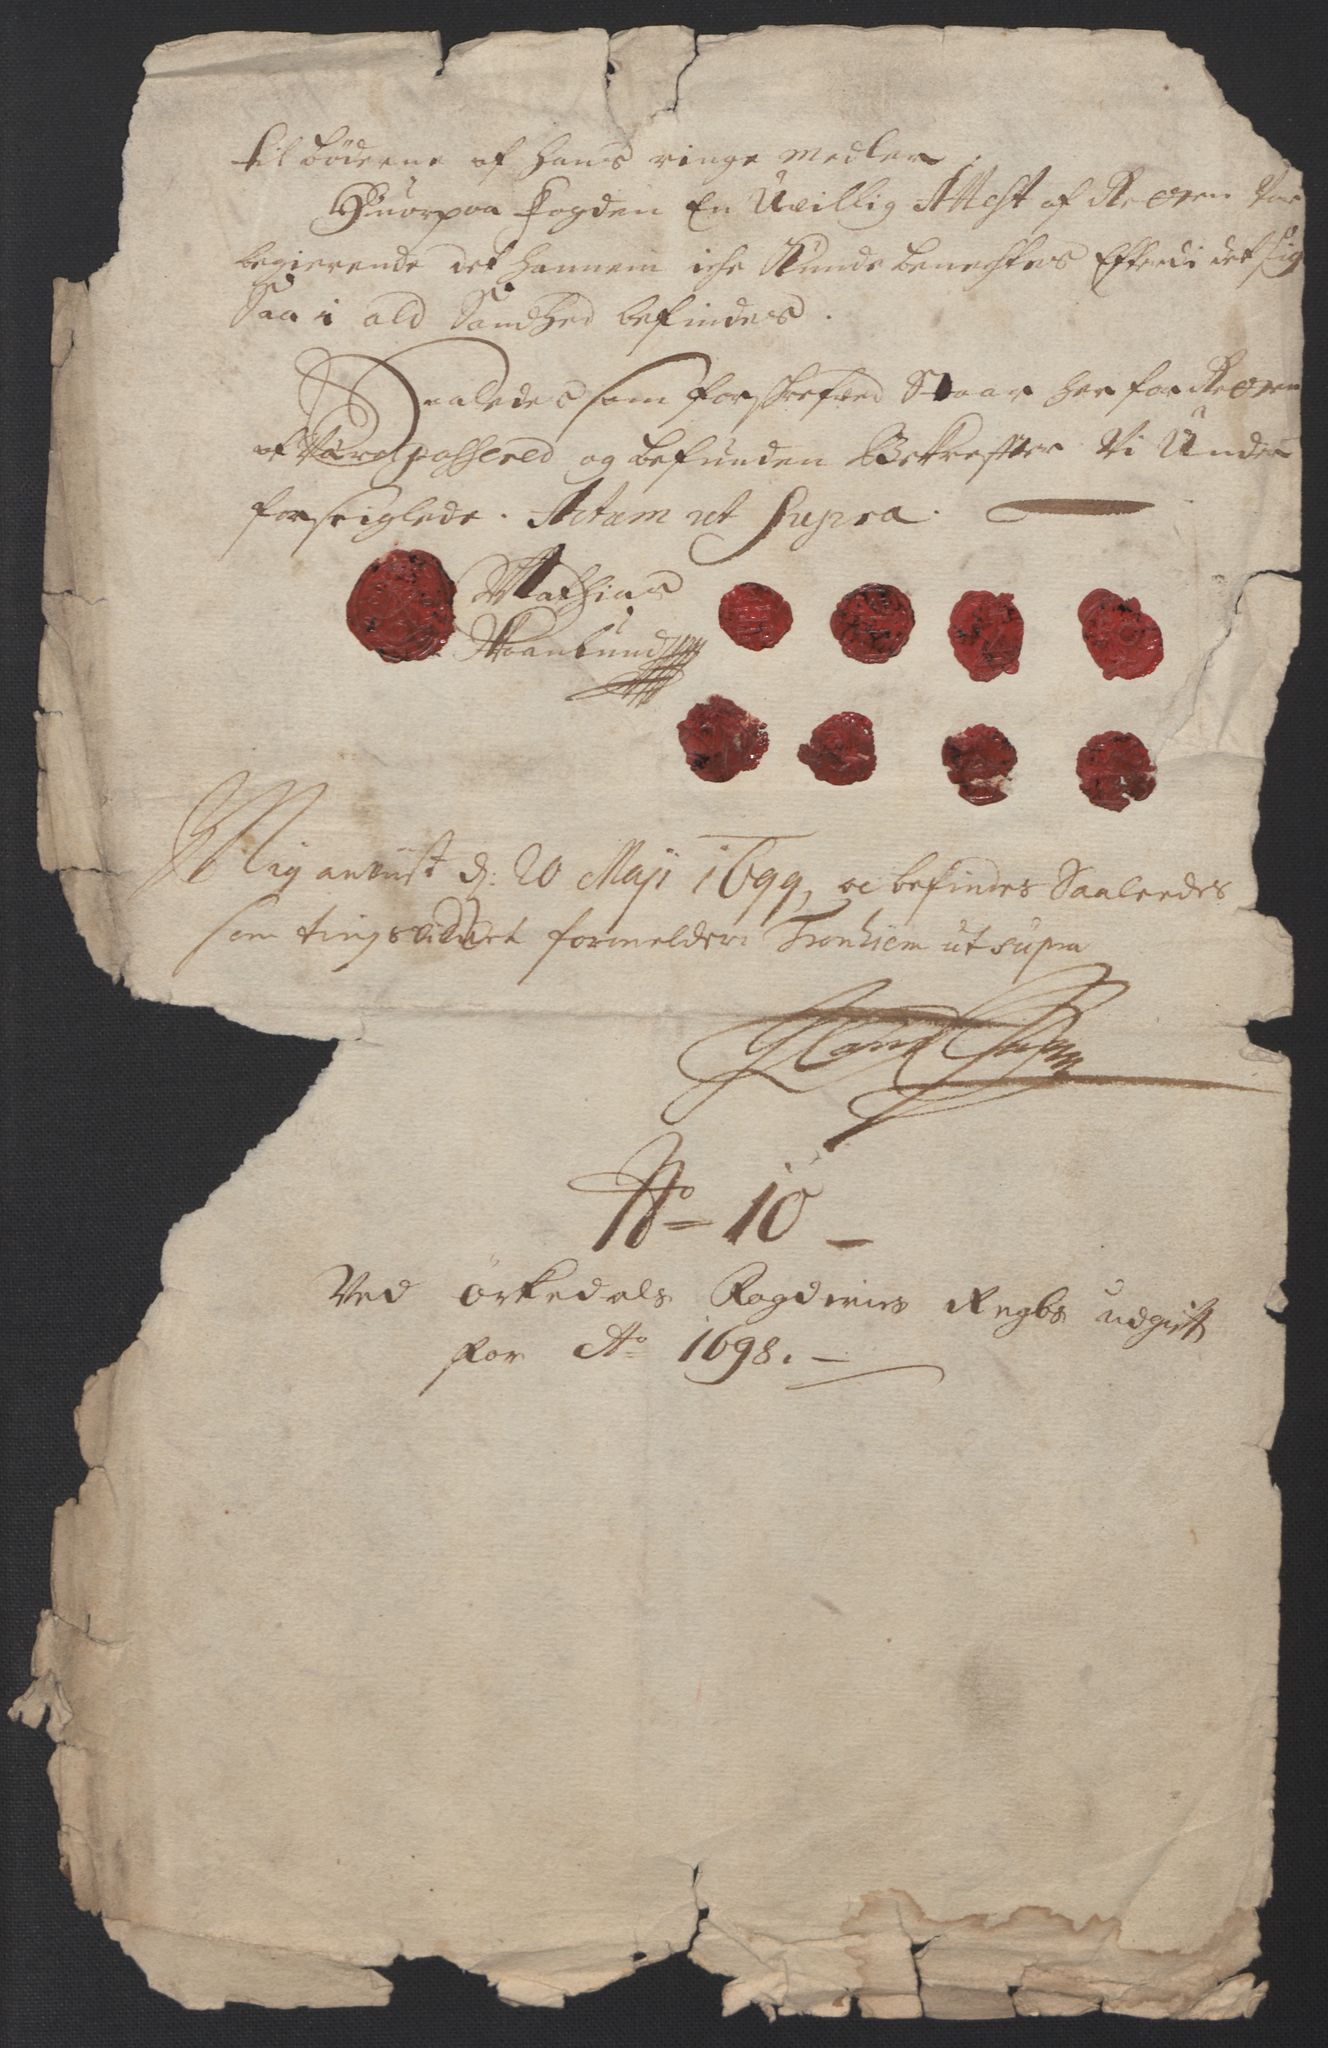 til bøderne af hans ringe medler.
Huorpaa fogden En Uvillig Attest af Retten Var
begierende det hannem iche Kunde benechtes Efterdi det sig
Saa i ald Sandhed befindes.
Saaledes som forschrefved Staar her for Retten
at Være passered og befunden Bekrefter Vi Under
forseiglede. Actum ut Supra.
Mathias
Mig anviist d: 20 Maji 1699, oc befindes Saaleedes
som tingsvidnet formelder. Tronhiem ut supra
No 10
Ved Örkedals Fogderies Regbs udgift
for Ao 1698.